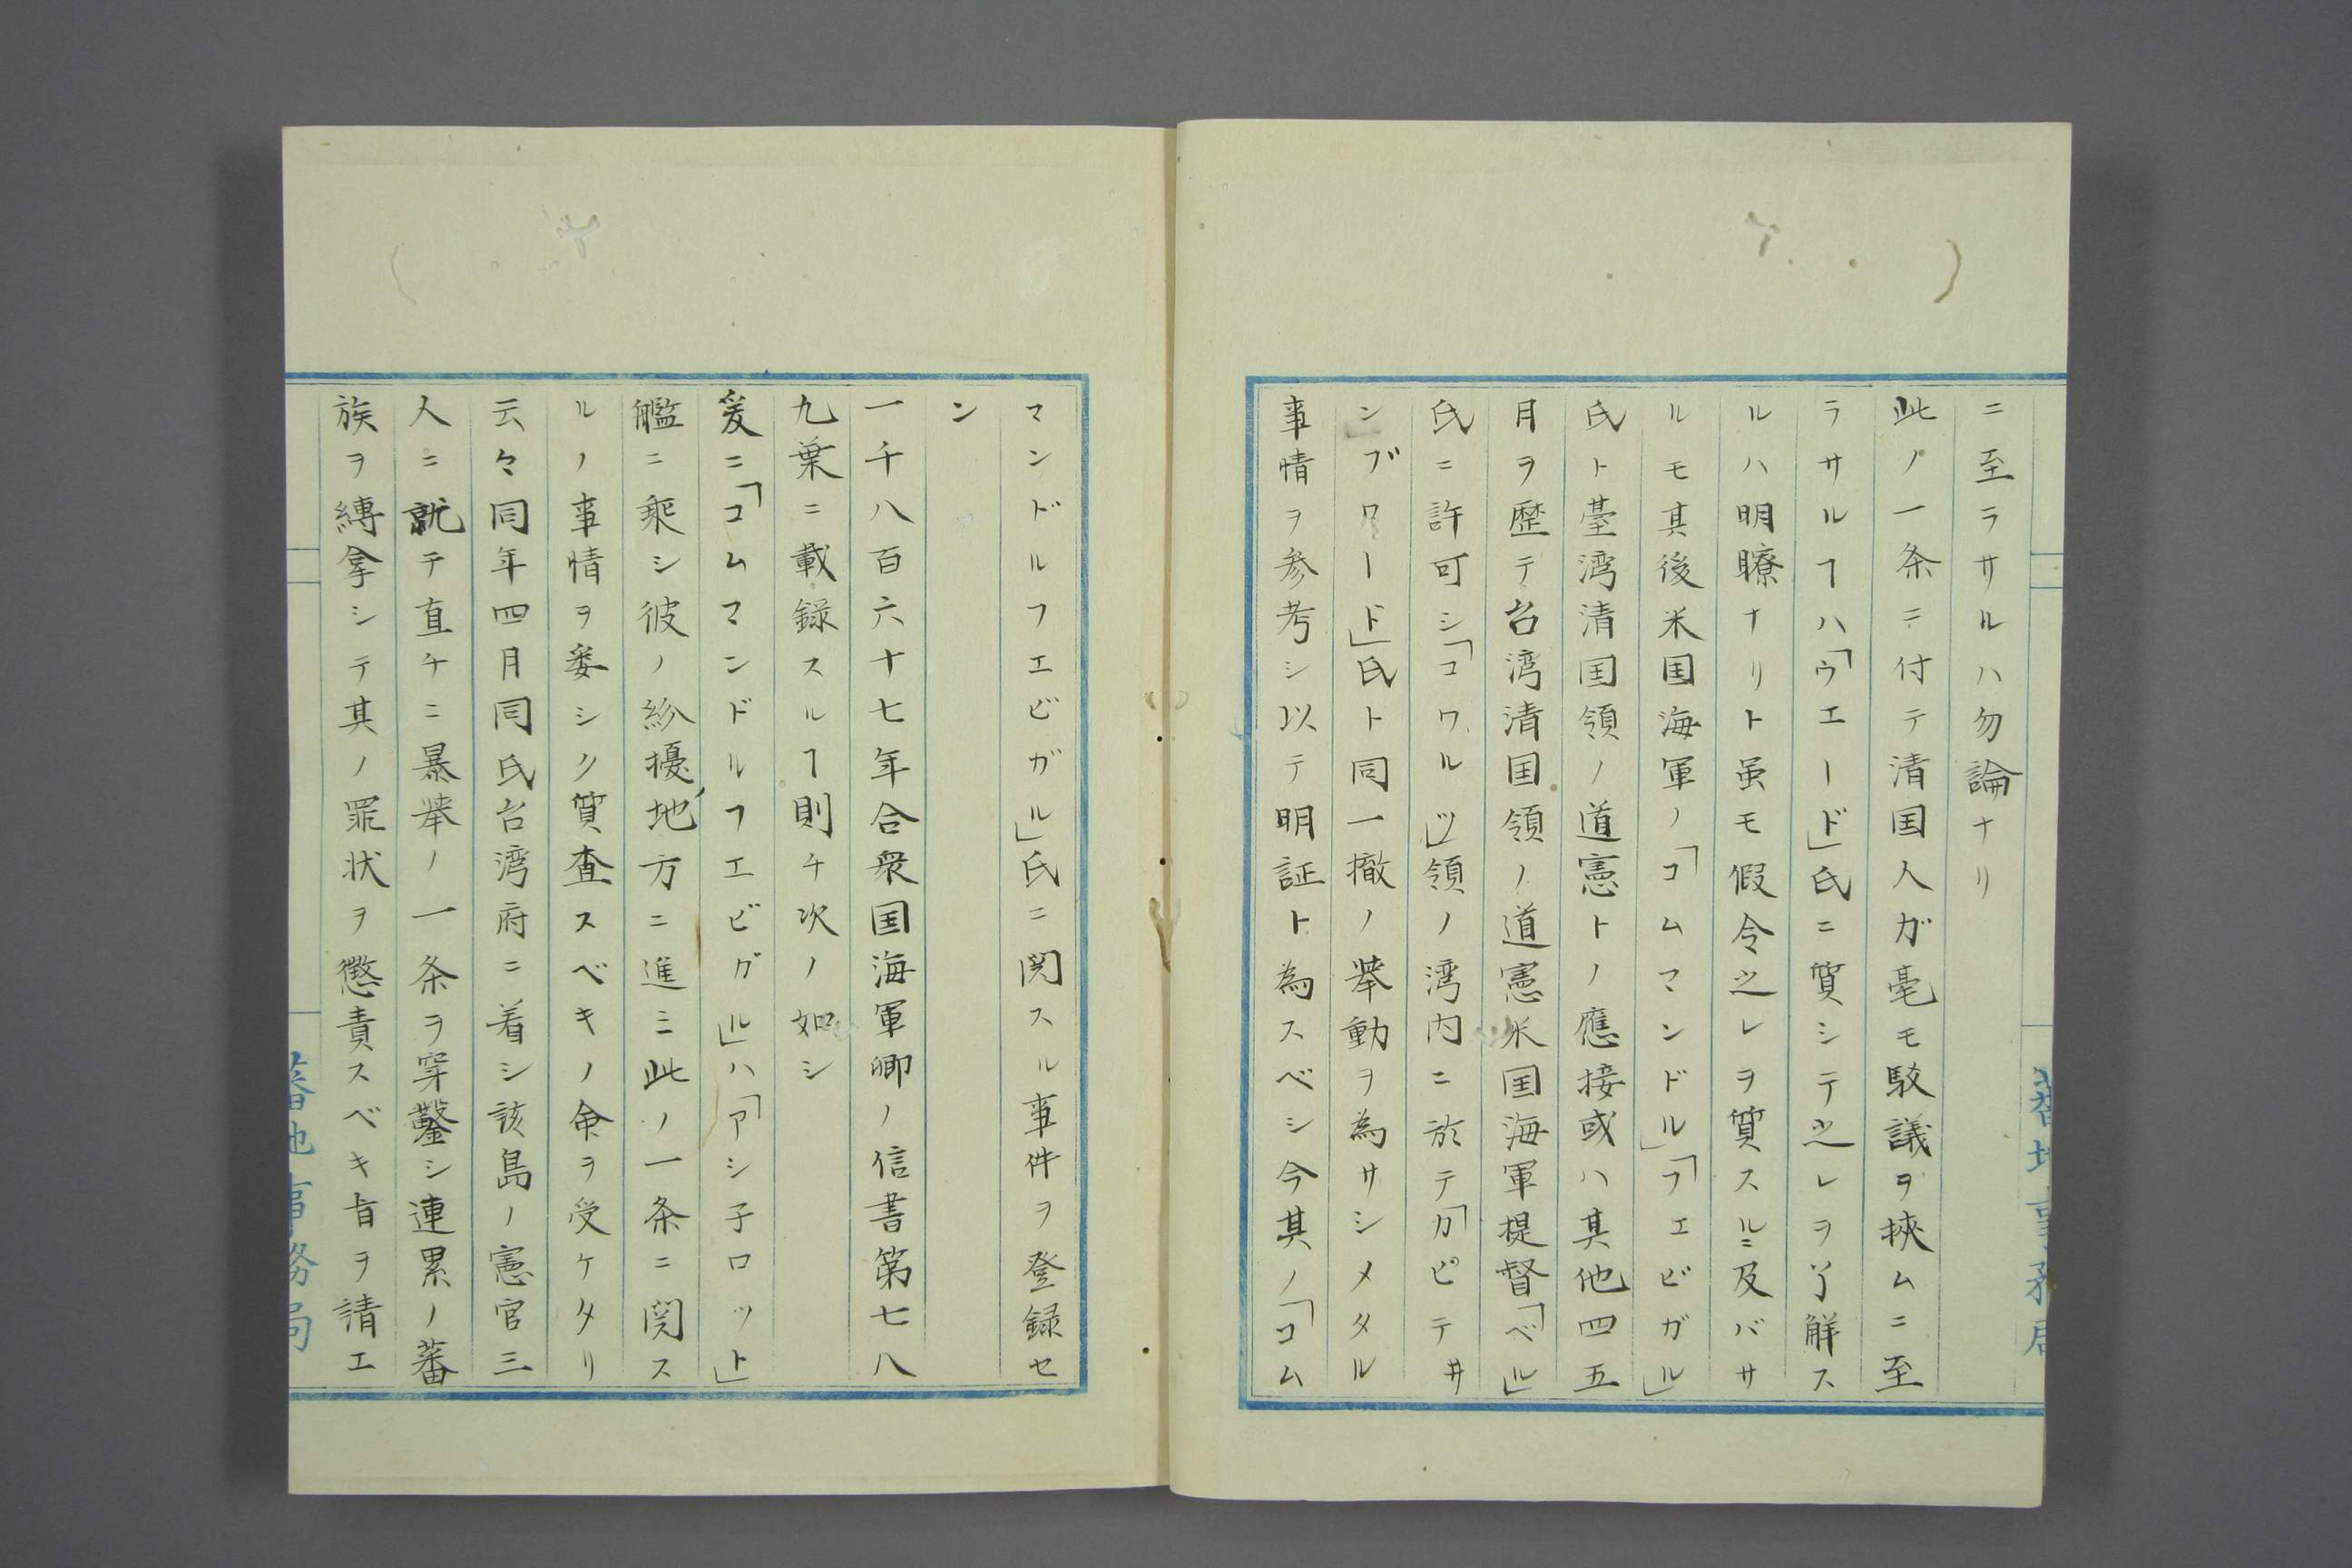 ニ至ラサルハ勿論ナリ
此ノ一条ニ付テ清国人ガ毫モ駁議ヲ挾ムニ至
ラサルヿハ「ウエード」氏ニ質シテ之レヲ了解ス
ルハ明瞭ナリト虽モ假令之レヲ質スルニ及バサ
ルモ其後米国海軍ノ「コムマンドル」「フェビガル」
氏ト臺湾清国領ノ道憲トノ應接或ハ其他四五
月ヲ歴テ台湾清国領ノ道憲米国海軍提督「ベル」
氏ニ許可シ「コワルツ」領ノ湾内ニ於テ「カピテヰ
ンブロード」氏ト同一撤ノ挙動ヲ為サシメタル
事情ヲ参考シ以テ明証ト為スベシ今其ノ「コム
マンドルフエビガル」氏ニ関スル事件ヲ登録セ
ン
一千八百六十七年合衆国海軍卿ノ信書第七八
九葉ニ載録スルヿ則チ次ノ如シ
爰ニ「コムマンドルフエビガル」ハ「アシ子ロット」
艦ニ乗シ彼ノ紛擾地方ニ進ミ此ノ一条ニ関ス
ルノ事情ヲ委シク質査スベキノ命ヲ受ケタリ
云々同年四月同氏台湾府ニ着シ該島ノ憲官三
人ニ就テ直チニ暴挙ノ一条ヲ穿鑿シ連累ノ蕃
族ヲ縛拿シテ其ノ罪状ヲ懲責スベキ旨ヲ請エ
蕃地事務局